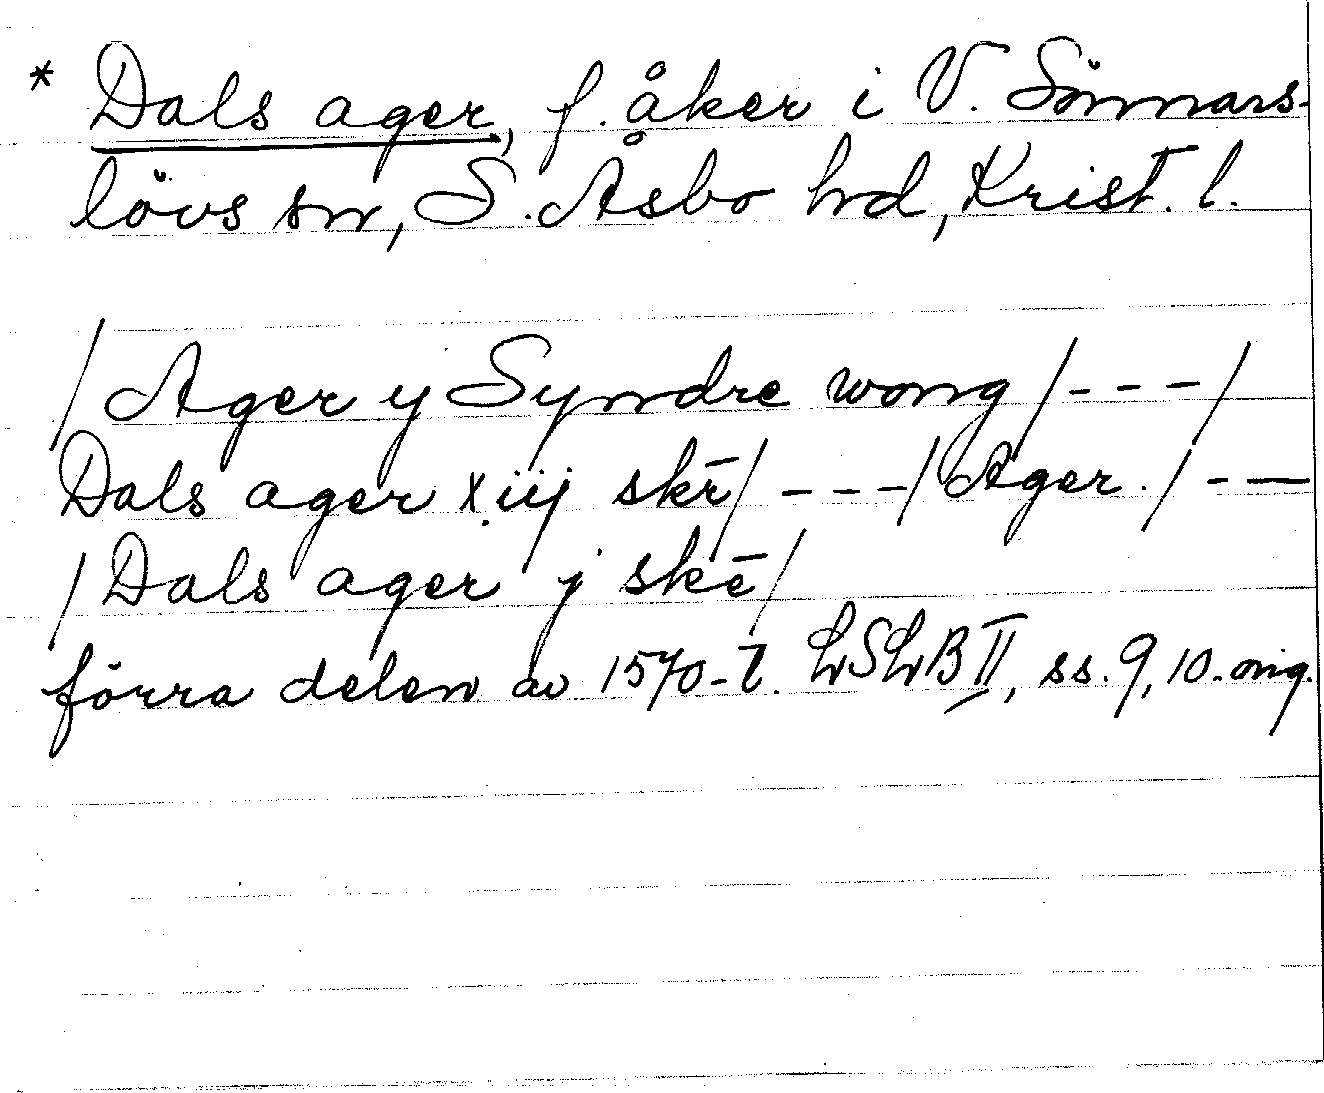 * Dals ager, f. åker i V. Sönnars-
lövs sn, S. Åsbo hd, Krist. l.
/Ager y Syndre wong/---/
Dals ager xiij skē/---/Ager./---
/Dals ager j skē/
förra delen av 1570-t. LSLB II, ss. 9, 10. orig.